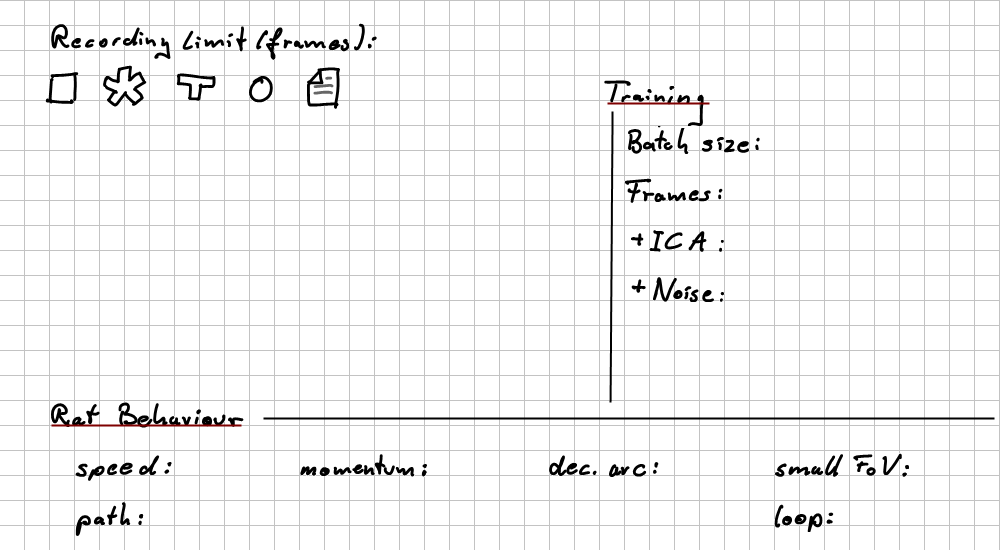 Recording Limit (frames):
Training
Batch size:
Frames:
+ ICA :
+ Noise:
Rat Behaviour
speed: momentum: dec. arc: small FoV:
path: loop: